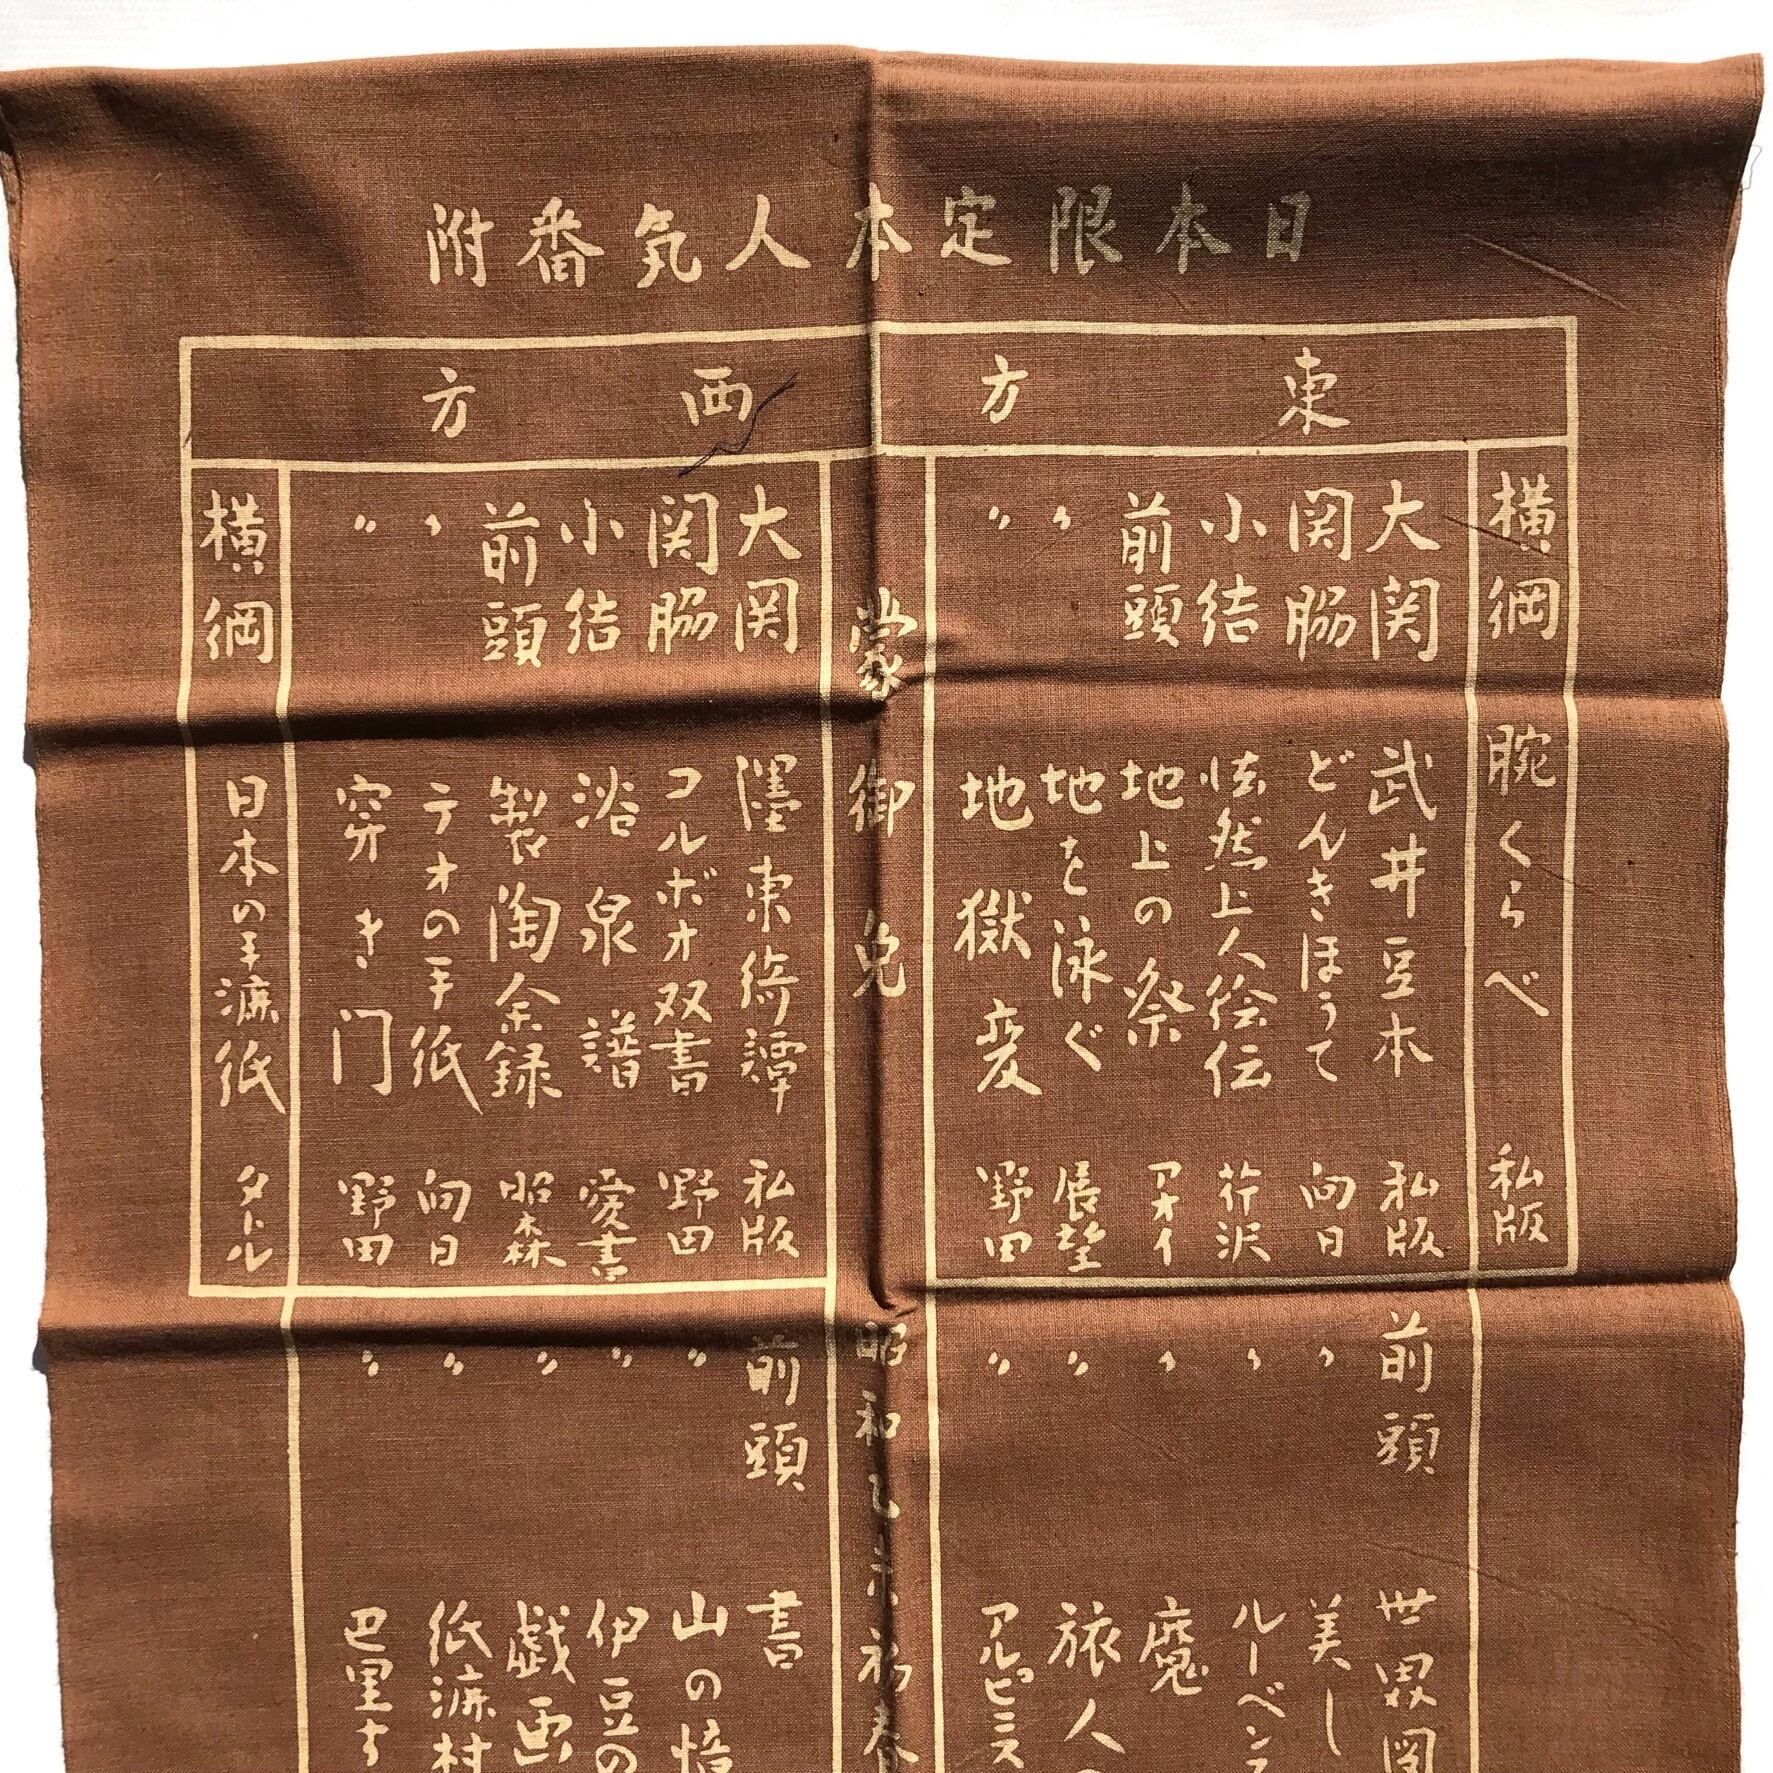 日本限定本人気番附
東方
横綱 腕くらべ 私版
大関 武井豆本 私版
関脇 どんきほうて 向日
小結 法然上人絵伝 芹沢
前頭 地上の祭 アオイ
〃 地を泳ぐ 展望
〃 地獄変 野田
蒙御免 昭和乙未初春
西方
大関 濹東綺譚 私版
関脇 コルボオ双書 野田
小結 浴泉譜 愛書
前頭 製陶余録 昭森
〃 テオの手紙 向日
〃 窄き門 野田
横綱 日本の手漉紙 タトル
前頭 世界図
〃 美し
〃 ルーベンス
〃 魔
〃 旅人の
〃 アルピニス
前頭 書
〃 山の憶
〃 伊豆の
〃 戯画
〃 紙漉村
〃 巴里す